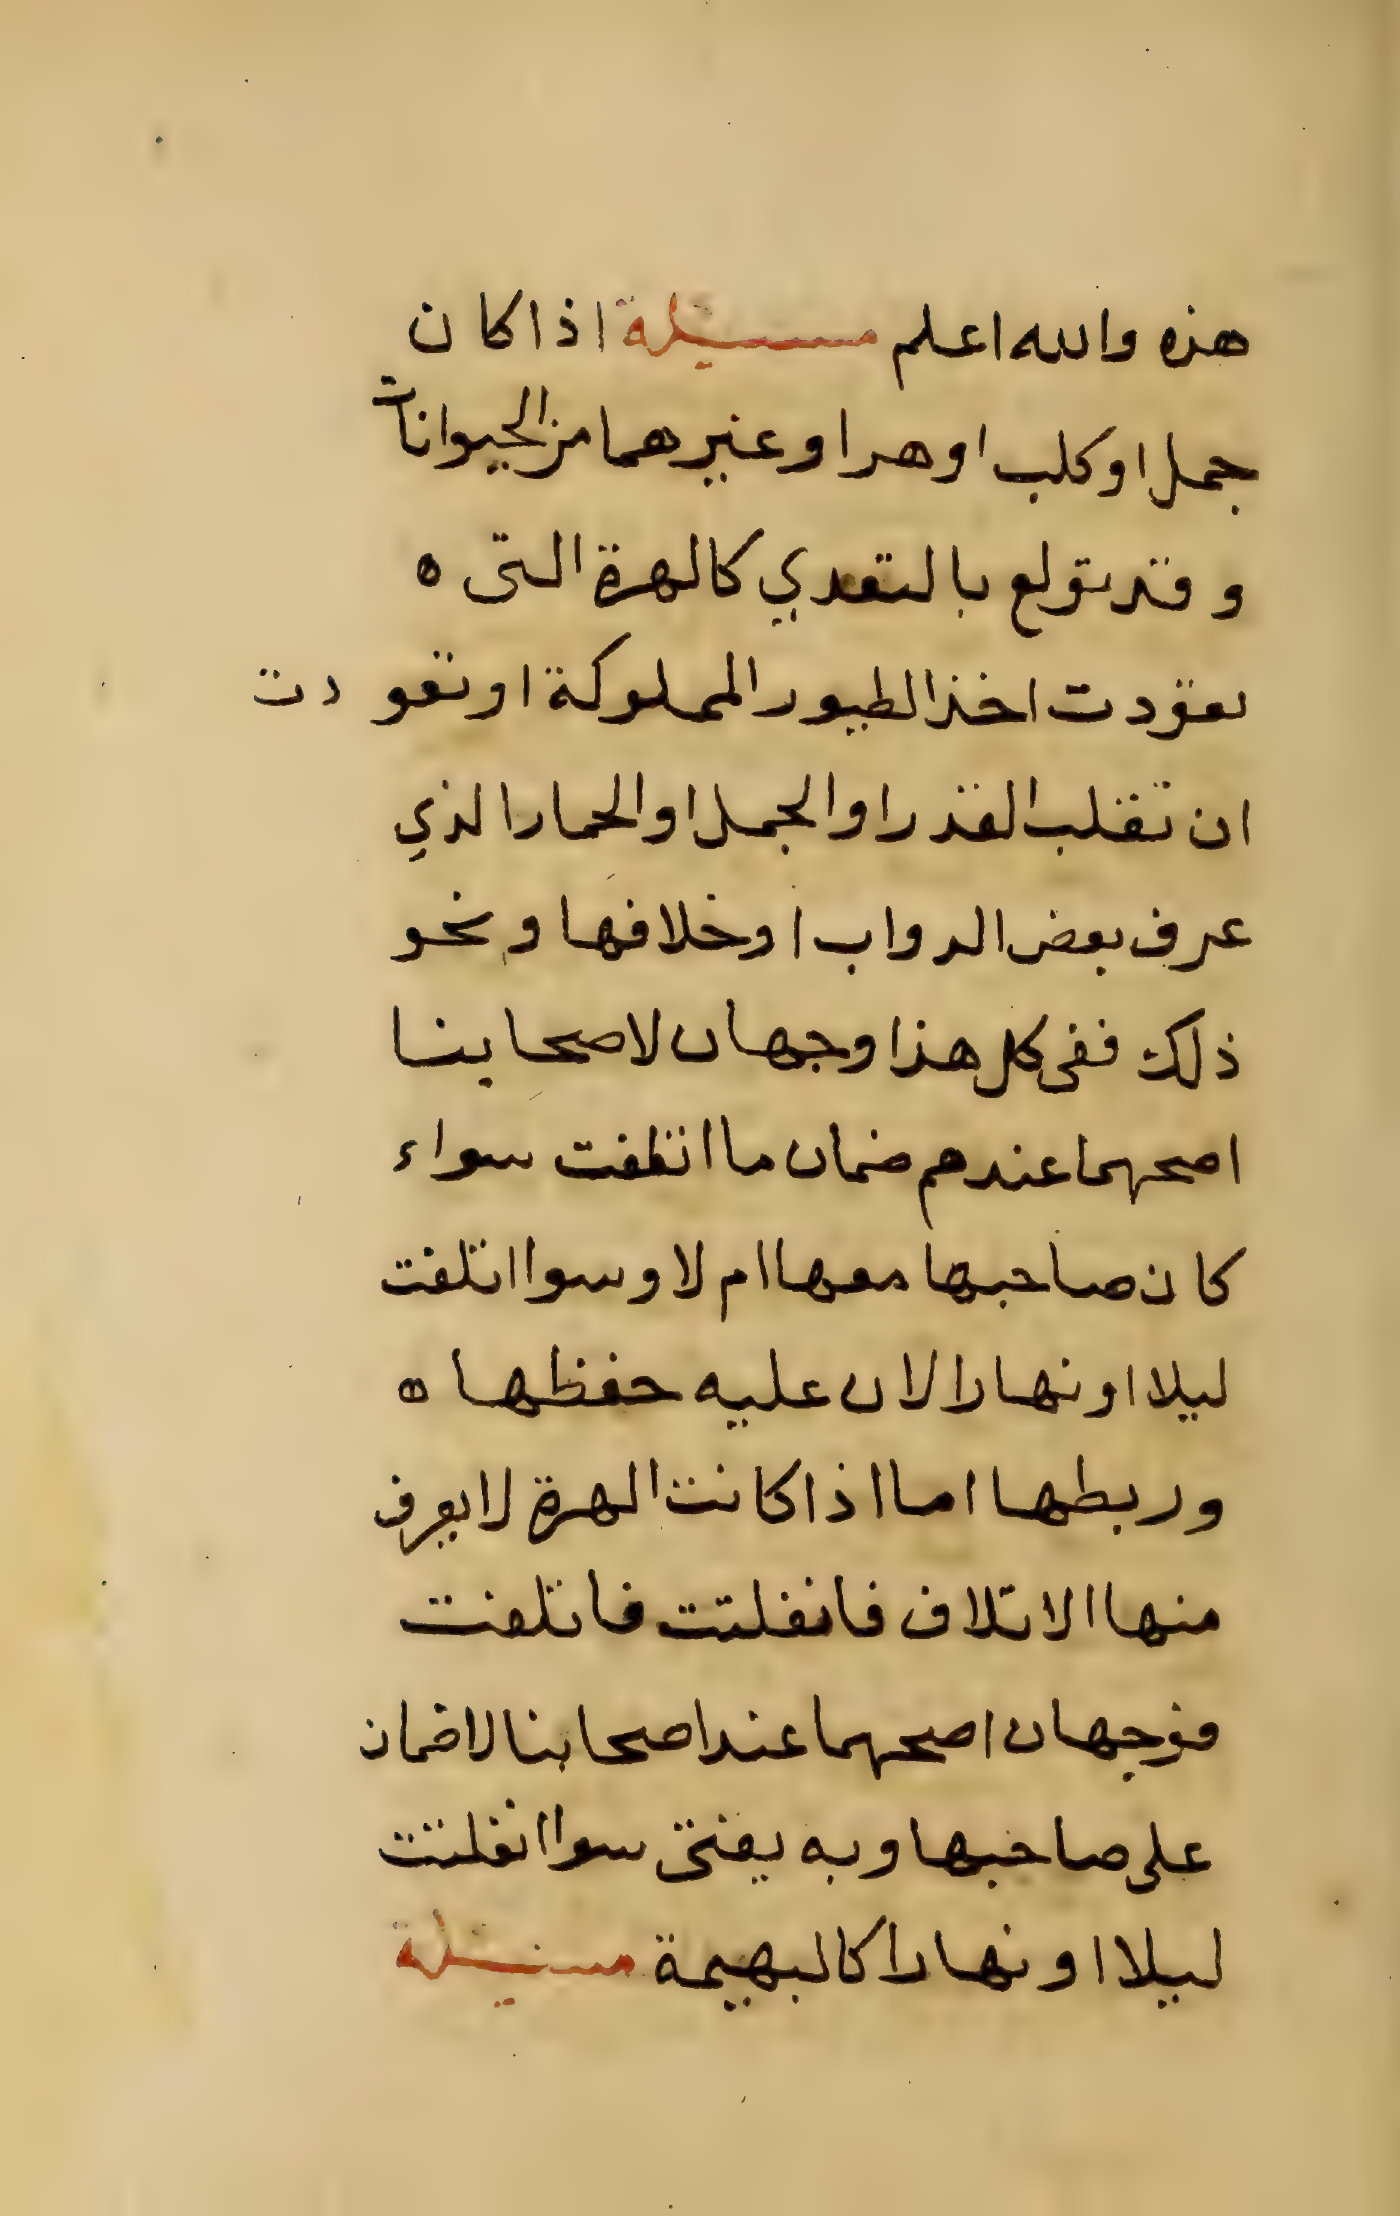 هذه والله اعلم مسئلة اذا كان
جمل او كلب او هر او غيرهما من الحيوانات
و قد تولع بالتعدي كالهرة التى ه
تعودت اخذ الطيور المملوكة او تعودت
ان تقلب القدر او الجمل او الحمار الذي
عرف بعض الدواب او خلافها و نحو
ذلك ففى كل هذا وجهان لاصحابنا
اصحهما عندهم ضمان ما اتلفت سواء
كان صاحبها معها ام لا و سوا اتلفت
ليلا او نهارا لان عليه حفظها ه
وربطها اما اذا كانت الهرة لا يعرف
منها الاتلاف فانفلتت فاتلفت
فوجهان اصحهما عند اصحابنا لا ضمان
على صاحبها وبه يفتى سوا انفلتت
ليلا او نهارا كالبهيمة مسئلة